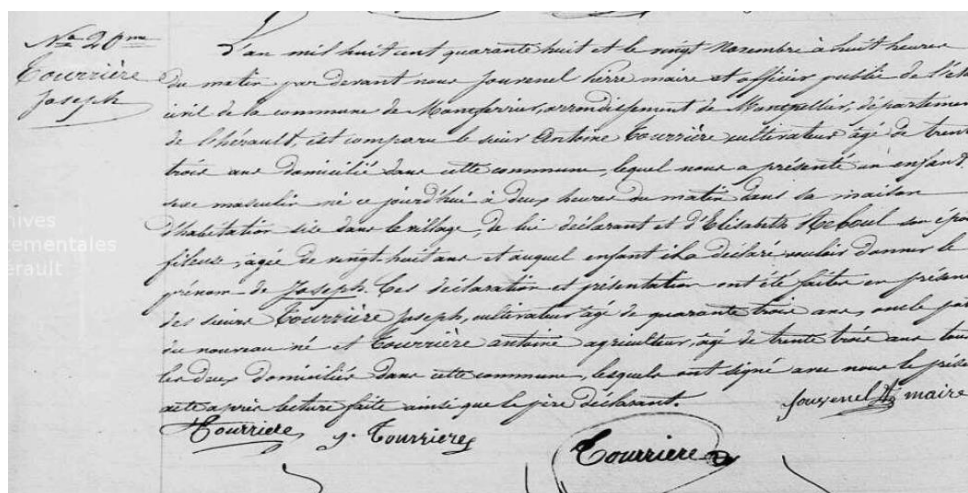 N° 20me
Tourrière
Joseph
L'an mil huit cent quarante huit et le vingt Novembre à huit heures
du matin par devant nous Jouvenel Pierre maire et officier public de l'éta
civil de la commune de Montferrier, arrondissement de Montpellier, départemen
de l'hérault, est comparu le sieur Antoine Tourrière cultivateur âgé de trent
trois ans domicilié dans cette commune, lequel nous a présenté un enfant
sexe masculin né ce jourd'hui à deux heures du matin dans sa maison
d'habitation sise dans le village, de lui déclarant et d'Elisabeth Reboul son épou
fileuse, âgée de vingt huit ans et auquel enfant il a déclaré vouloir donner le
prénom de Joseph. Ces déclaration et présentation ont été faites en présen
des sieurs Tourrière Joseph, cultivateur âgé de quarante trois ans, oncle pa
du nouveau né et Tourrière antoine agriculteur, âgé de trente trois ans tous
les deux domiciliés dans cette commune, lesquels ont signé avec nous le prése
acte après lecture faite ainsi que le père déclarant.
Jouvenel maire
Tourriere J. Tourriere
Tourriere
hives
tementales
érault